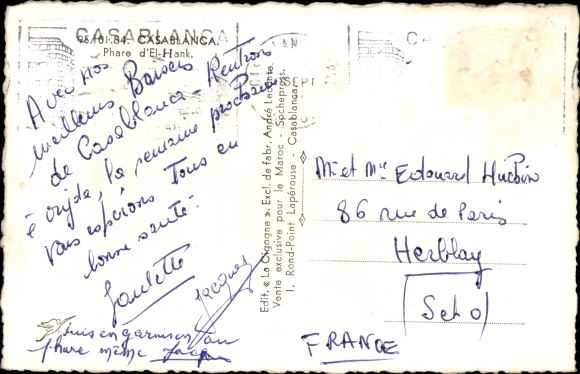 CASABLANCA
95.101.84. CASABLANCA.
Phare d'El-Hank.
SEPT
CA
Avec nos
meilleurs Baisers
de Casablanca - Rentrons
à oujda, la semaine prochaine
Vous espérons Tous en
bonne santé.
Paulette
Jacques
suis en garnison au
phare même Jacques
Edit. « La Cigogne ». Excl. de fabr. André Leconte.
Vente exclusive pour le Maroc - Sochepress.
1, Rond-Point Lapérouse - Casablanca.
Mr et Me Edouard
86 rue de Paris
Herblay
(S et O)
FRANCE